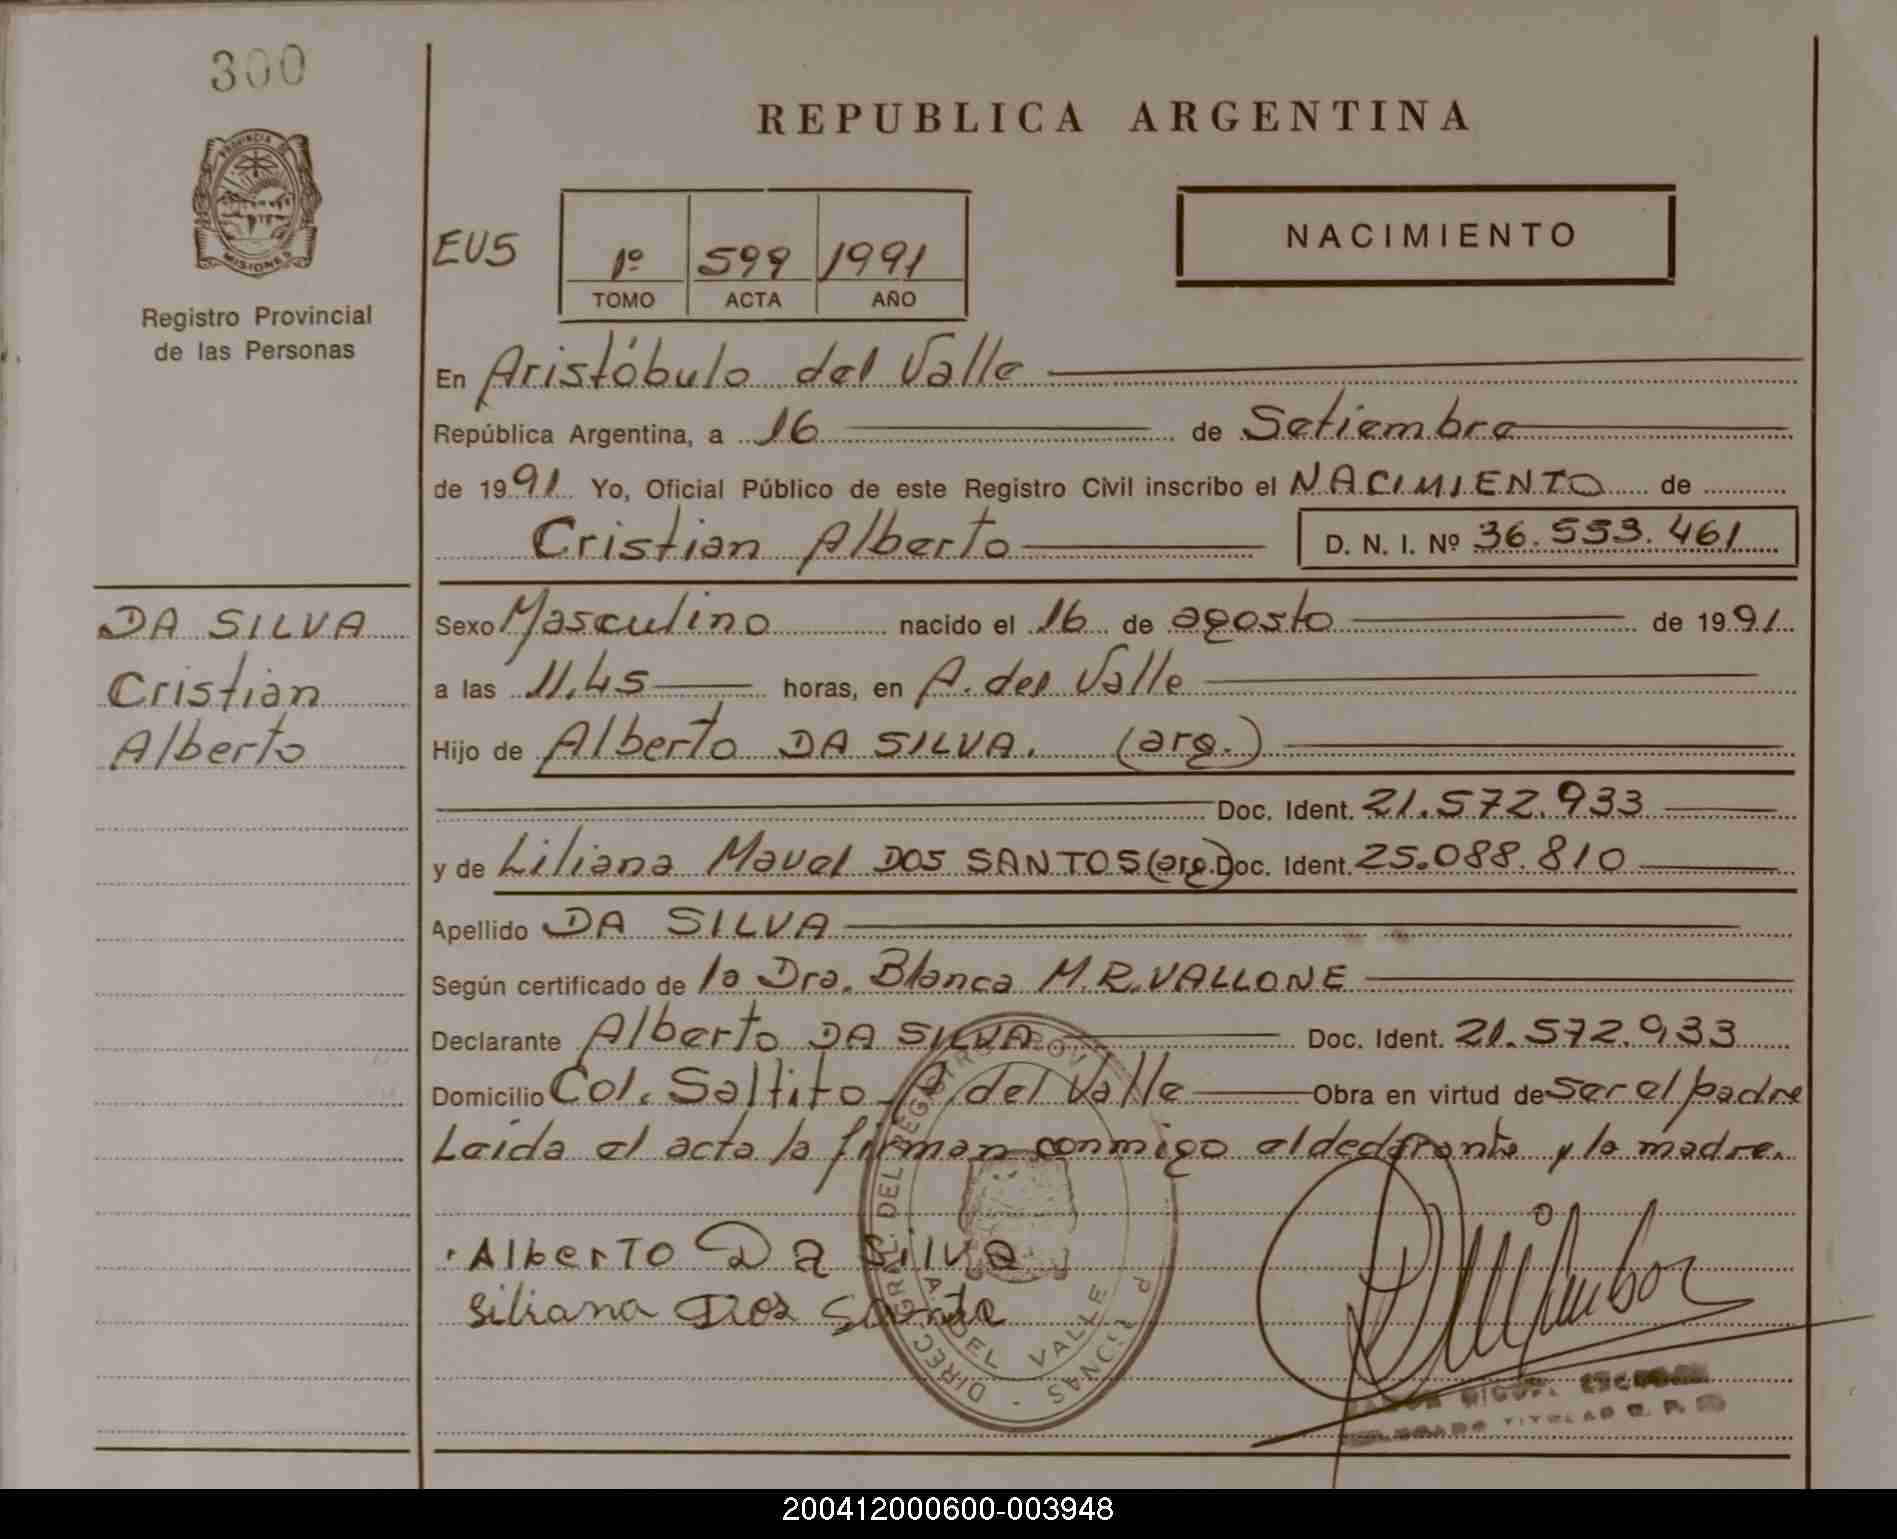 300
PROVINCIA DE
MISIONES
Registro Provincial
de las Personas
REPUBLICA ARGENTINA
NACIMIENTO
EUS
1º 599 1991
TOMO ACTA AÑO
En Aristóbulo del Valle
República Argentina, a 16 de Setiembre
de 1991 Yo, Oficial Público de este Registro Civil inscribo el NACIMIENTO de
Cristian Alberto D. N. I. Nº 36.553.461
DA SILVA
Cristian
Alberto
Sexo Masculino nacido el 16 de agosto de 1991
a las 11,45 horas, en A. del Valle
Hijo de Alberto DA SILVA. (arg.)
Doc. Ident. 21.572.933
y de Liliana Mavel DOS SANTOS (arg.) Doc. Ident. 25.088.810
Apellido DA SILVA
Según certificado de la Dra. Blanca M.R. VALLONE
Declarante Alberto DA SILVA Doc. Ident. 21.572.933
Domicilio Col. Saltito A. del Valle Obra en virtud de ser el padre
Leida el acta la firman conmigo el declarante y la madre.
Alberto Da Silva
Liliana Dos Santo
DIREC. GRAL. DEL REGISTRO PROV.
A. DEL VALLE
MIGUEL
TITULAR R. P.
200412000600-003948